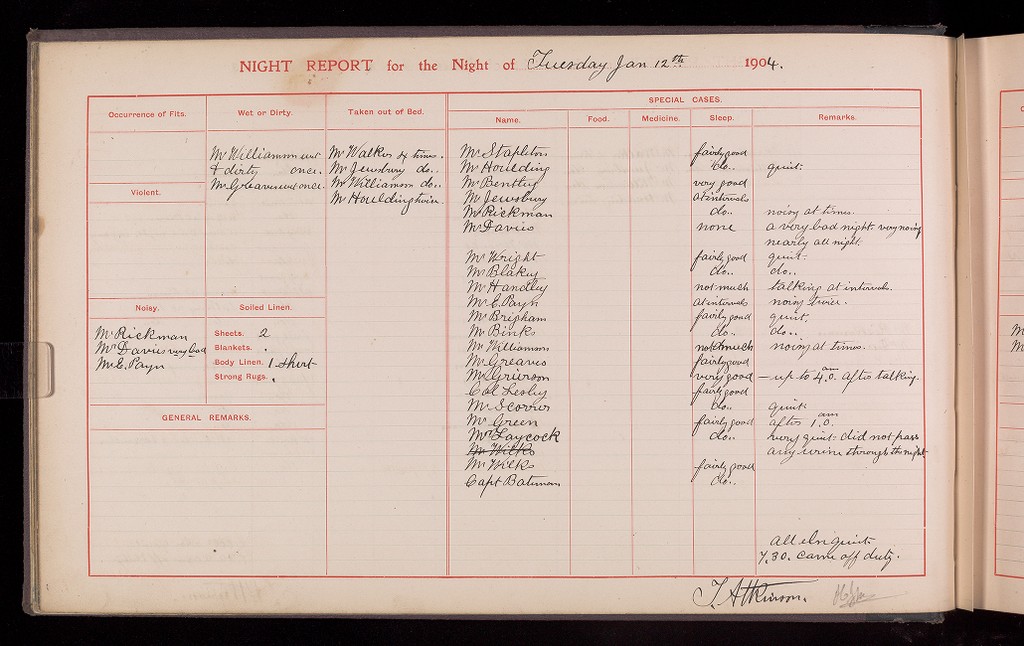 NIGHT REPORT for the Night of Tuesday Jan 12th 1904.
Occurrence of Fits.
Wet or Dirty.
Mr Williamson wet
& dirty once.
Mr Greaves wet once.
Taken out of Bed.
Mr Walker 4 times.
Mr Jewsbury do..
Mr Williamson do..
Mr Houlding twice.
Violent.
Noisy.
Mr Rickman
Mr Davies very bad
Mr E. Payn
Soiled Linen.
Sheets. 2
Blankets. .
Body Linen. 1 shirt
Strong Rugs. .
GENERAL REMARKS.
SPECIAL CASES.
Name. Food. Medicine. Sleep. Remarks.
Mr Stapleton fairly good
Mr Houlding do.. quiet.
Mr Bentley very good
Mr Jewsbury at intervals
Mr Rickman do.. noisy at times.
Mr Davies none a very bad night. very noisy
nearly all night.
Mr Wright fairly good quiet.
Mr Blakey do.. do..
Mr Handley not much talking at intervals.
Mr E. Payn at intervals noisy twice.
Mr Brigham fairly good quiet.
Mr Binks do.. do..
Mr Williamson not much noisy at times.
Mr Greaves fairly good
Mr Grierson very good — up to 4.0. am after talking.
Col Lesley fairly good
Mr Scorrer do.. quiet
Mr Green fairly good after 1.0. am
Mr Laycock do.. very quiet. did not pass
Mr Wilks any urine through the night
Mr Wilks fairly good
Capt Bateman do..
all else quiet.
7.30. came off duty.
T. Atkinson.